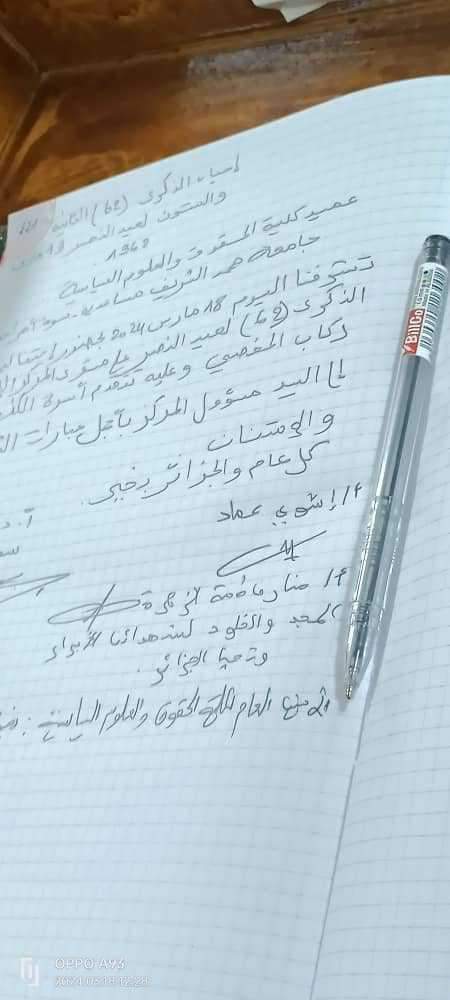 إحياء الذكرى (62) الثانية
والستون لعيد النصر 19 مارس
1962
عميد كلية الحقوق والعلوم السياسية
جامعة محمد الشريف مساعدية سوق أهراس
تشرفنا اليوم 18 مارس 2024 بحضور احتفالية
الذكرى (62) لعيد النصر على مستوى المركز
ركاب المفصي وعليه تتقدم أسرة الكلية
إلى السيد مسؤول المركز بأجل عبارات
والإمتنان
كل عام والجزائر بخير.
أ/ إشوي عماد
أ/ فاطمة الزهرة
المجد والخلود لشهدائنا الأبرار
وتحيا الجزائر.
العام لكلية الحقوق والعلوم السياسية :
BillCo
OPPO A93